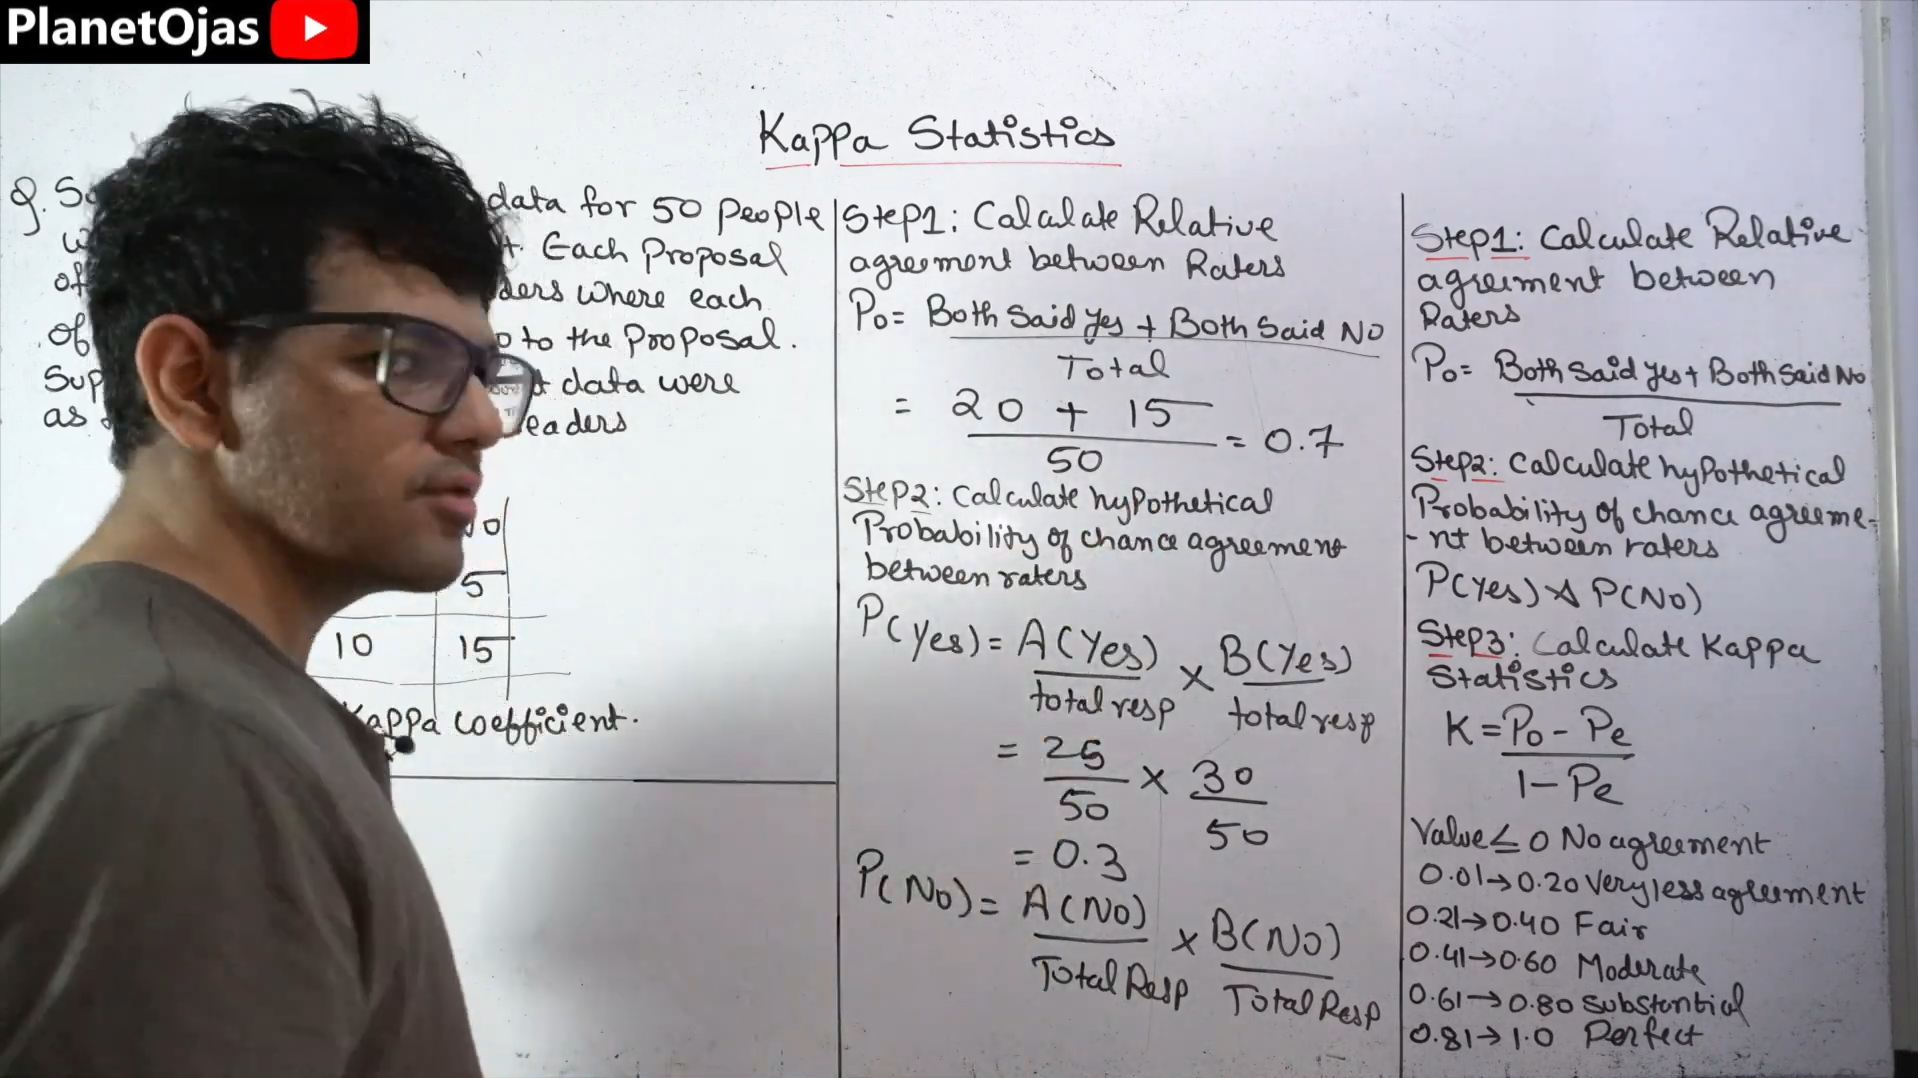 PlanetOjas
Kappa Statistics
Q. data for 50 People
Each Proposal
of where each
of to the Proposal.
data were
as
0
5
10 15
Kappa coefficient.
Step1: Calculate Relative
agreement between Raters
Po= Both Said yes + Both Said NO
Total
= 20 + 15
50
= 0.7
Step2: Calculate hypothetical
Probability of chance agreement
between raters
P(yes) = A(Yes) × B(Yes)
total resp total resp
= 25 × 30
50 50
= 0.3
P(No) = A(No) × B(No)
Total Resp Total Resp
Step1: Calculate Relative
agreement between
Raters
Po= Both Said yes + Both Said No
Total
Step2: Calculate hypothetical
Probability of chance agreeme-
-nt between raters
P(Yes) & P(No)
Step3: Calculate Kappa
Statistics
K = Po - Pe
1 - Pe
Value ≤ 0 No agreement
0.01→0.20 Very less agreement
0.21→0.40 Fair
0.41→0.60 Moderate
0.61→0.80 Substantial
0.81→1.0 Perfect